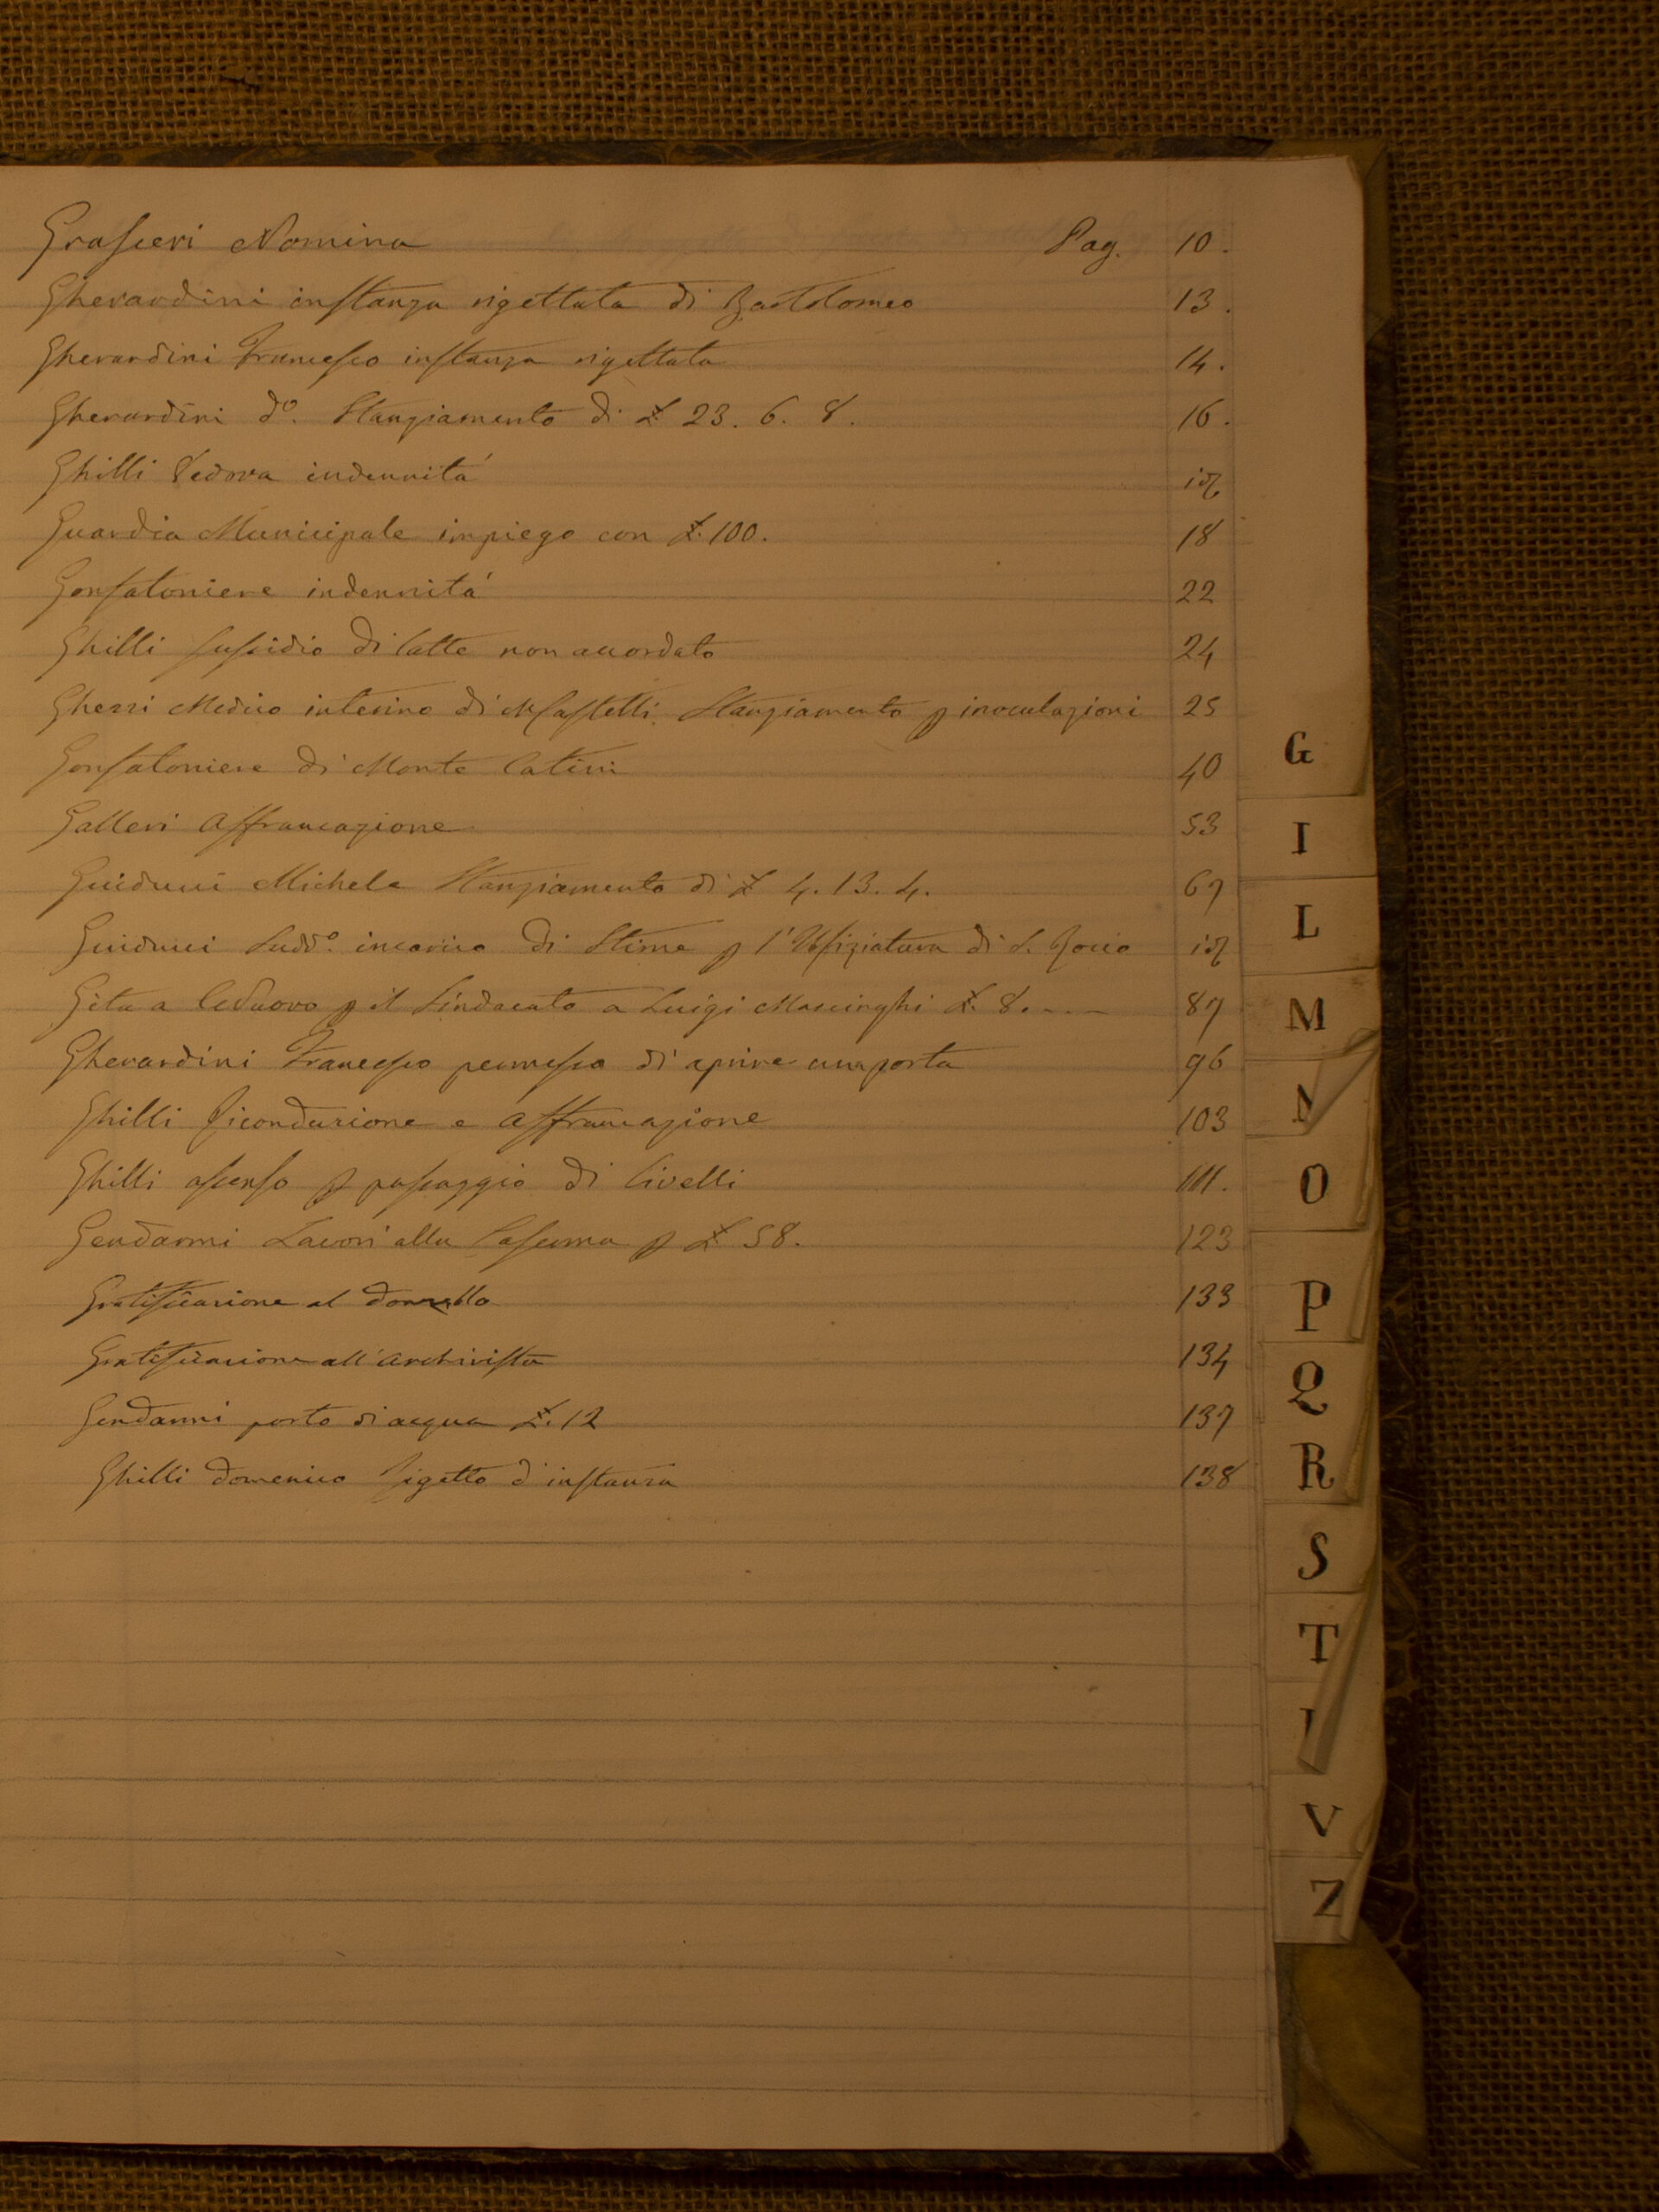 Grascieri Nomina Pag. 10.
Gherardini instanza rigettata di Bartolomeo 13.
Gherardini Francesco instanza rigettata 14.
Gherardini do. Stanziamento di £ 23. 6. 8. 16.
Ghilli Vedova indennitá id
Guardia Municipale impiego con £. 100. 18
Gonfaloniere indennitá 22
Ghilli sussidio di latte non accordato 24
Medico interino di Stanziamento p inoculazioni 25
Gonfaloniere di Monte Catini 40
Galleri Affrancazione 53
Guiducci Michele Stanziamento di £ 4. 13. 4. 67
Guiducci Sudd.o incarico di Stime p l'Ufiziatura di S. Rocco id
Gita a p il Sindacato a Luigi Mascinghi £. 8. - - - 87
Gherardini Francesco permesso di aprire una porta 96
Ghilli Riconduzione e Affrancazione 103
Ghilli assenso p passaggio di livelli 111.
Gendarmi Lavori alla Caserma p £ 58. 123
Gratificazione al donzello 133
Gratificazione all'Archivista 134
Gendarmi porto di acqua £. 12 137
Ghilli Domenico Rigetto d'instanza 138
G
I
L
M
N
O
P
Q
R
S
T
V
Z